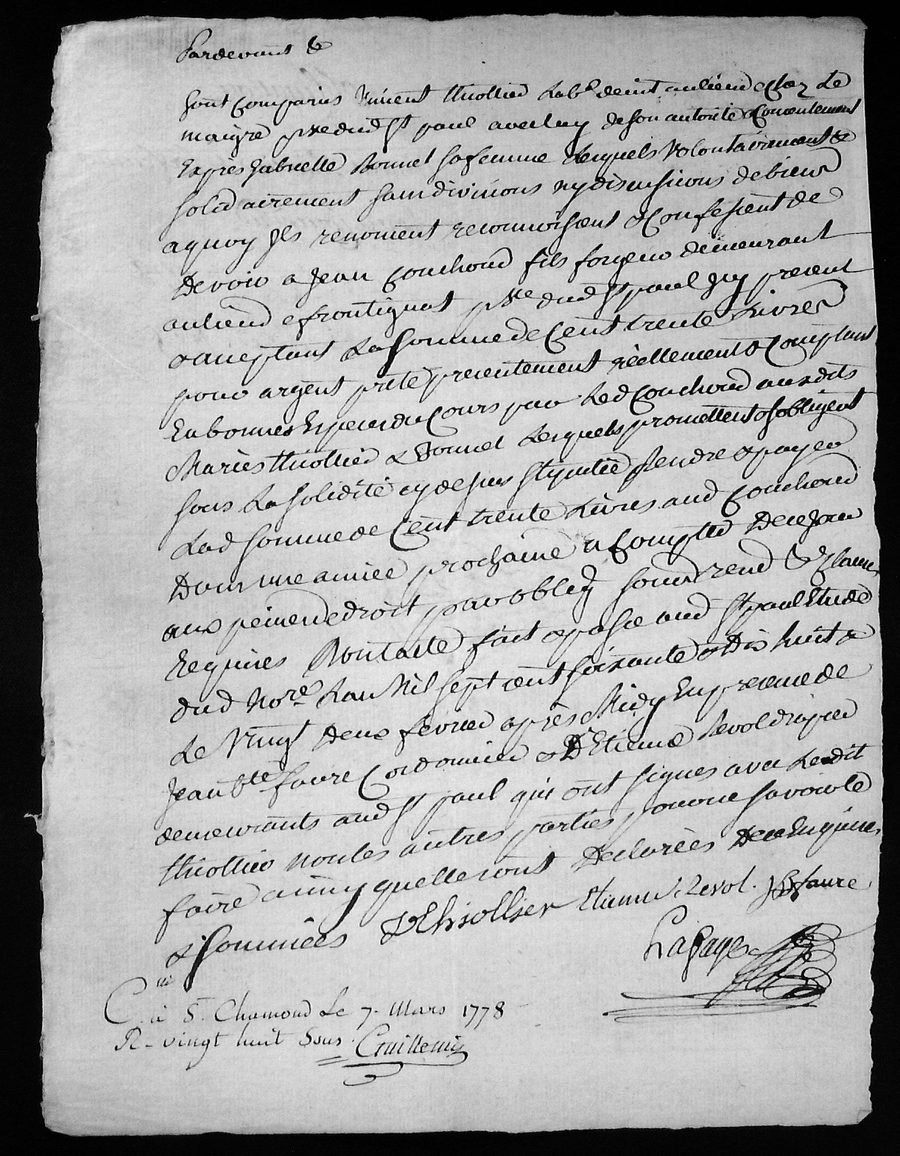 Pardevant &
sont comparus Vincent thiollier Lab.r demt au lieu de chez Le
maigre psse dud St paul avec luy de son autorité & Consentement
Exprès Gabrielle Bonnet sa femme Lesquels Volontairement &
solidairement sans divisions ny discusions de biens
a quoy jls renoncent reconnoissent & Confessent de
Devoir a Jean Couchoud fils forgeur demeurant
au lieu de frontignat psse dud St paul Jcy present
& aceptant La somme de Cent trente Livres
pour argent prêté presentement réellement & Comptant
En bonnes Especes du Cours par Led Couchoud auxdits
Mariés thiollier & Bonnet Lesquels promettent & sobligent
sous La solidité cy dessus stipulée Rendre & payer
Lad somme de Cent trente Livres aud Couchoud
Dans une année prochaine a Compter De ce Jour
aux peines de droit par oblig soumi rend & Clauses
Requises Dont acte fait & passé aud St paul Etude
dud No.re Lan Mil sept cent soixante & Dix huit &
Le Vingt Deux fevrier après Midy En presence de
Jean bte faure Cordonnier & Sr Etienne Revol drapier
demeurants aud St paul qui ont signés avec Ledit
thiollier non les autres parties pour ne savoir le
faire ainsy quelles ont Declarées De ce Enquises
& sommées V Thiollier Etienne Revol. JB faure
Lafaye
C.lé à St. Chamond Le 7. Mars 1778
R- vingt huit sous.